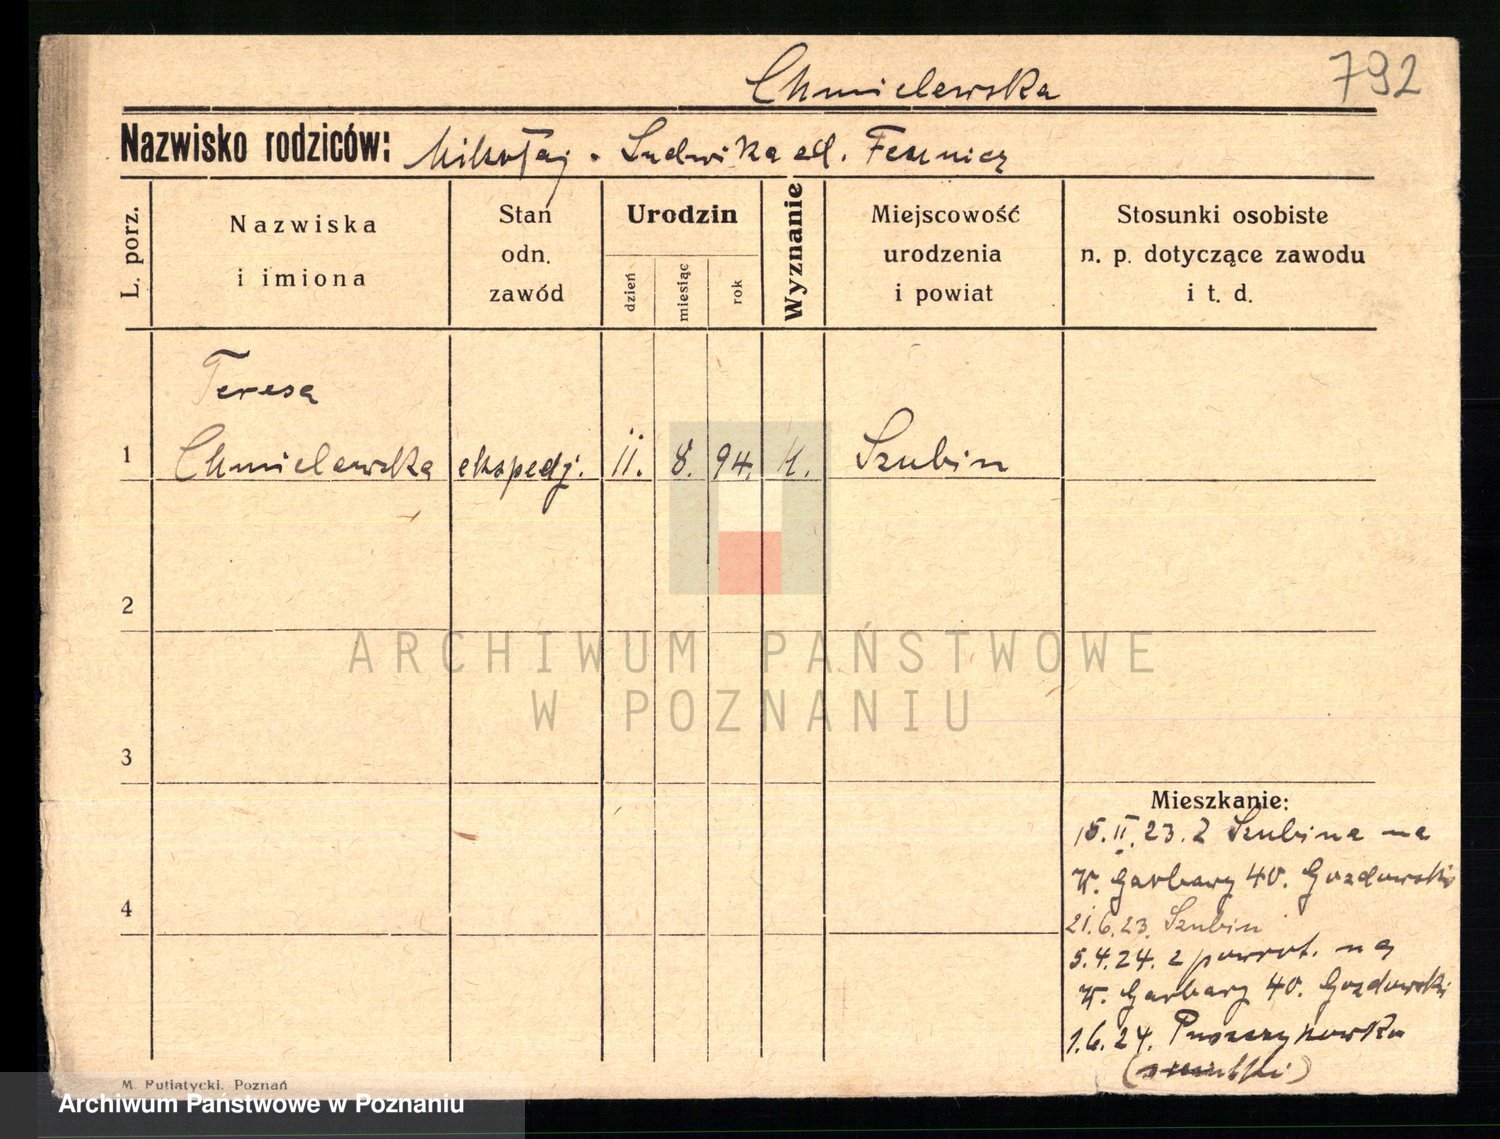 792
Chmielewska
Nazwisko rodziców: Mikołaj - Ludwika
L. porz.
Nazwiska
i imiona
Stan
odn.
zawód
Urodzin
dzień
miesiąc
rok
Wyznanie
Miejscowość
urodzenia
i powiat
Stosunki osobiste
n. p. dotyczące zawodu
i t. d.
Teresa
1 Chmielewska ekspedj. 11. 8. 94. k. Szubin
2
3
4
Mieszkanie:
15.II.23. Z Szubina na
W. Garbary 40. Gozdowski
21.6.23. Szubin
5.4.24. z powrot. na
W. Garbary 40. Gozdowski
1.6.24.
M. Putiatycki, Poznań
ARCHIWUM PAŃSTWOWE
W POZNANIU
Archiwum Państwowe w Poznaniu